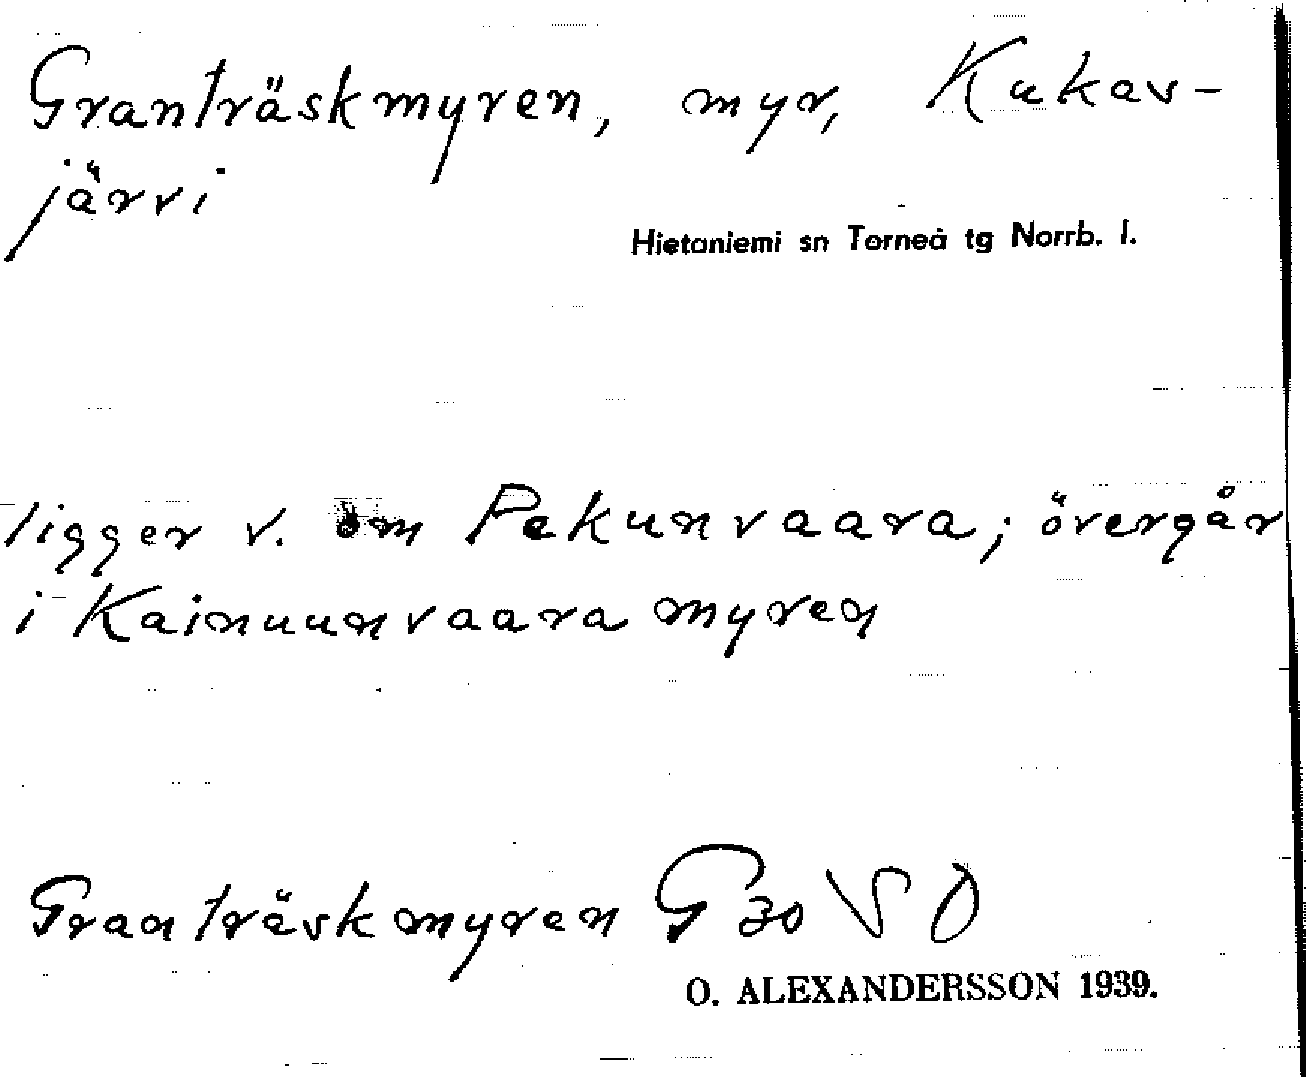 Granträskmyren, myr, Kukas-
järvi
Hietaniemi sn Torneå tg Norrb. l.
ligger v. om Pekunvaara; övergår
i Kainuunvaara myren
Granträskmyren G 30 VO
O. ALEXANDERSSON 1939.